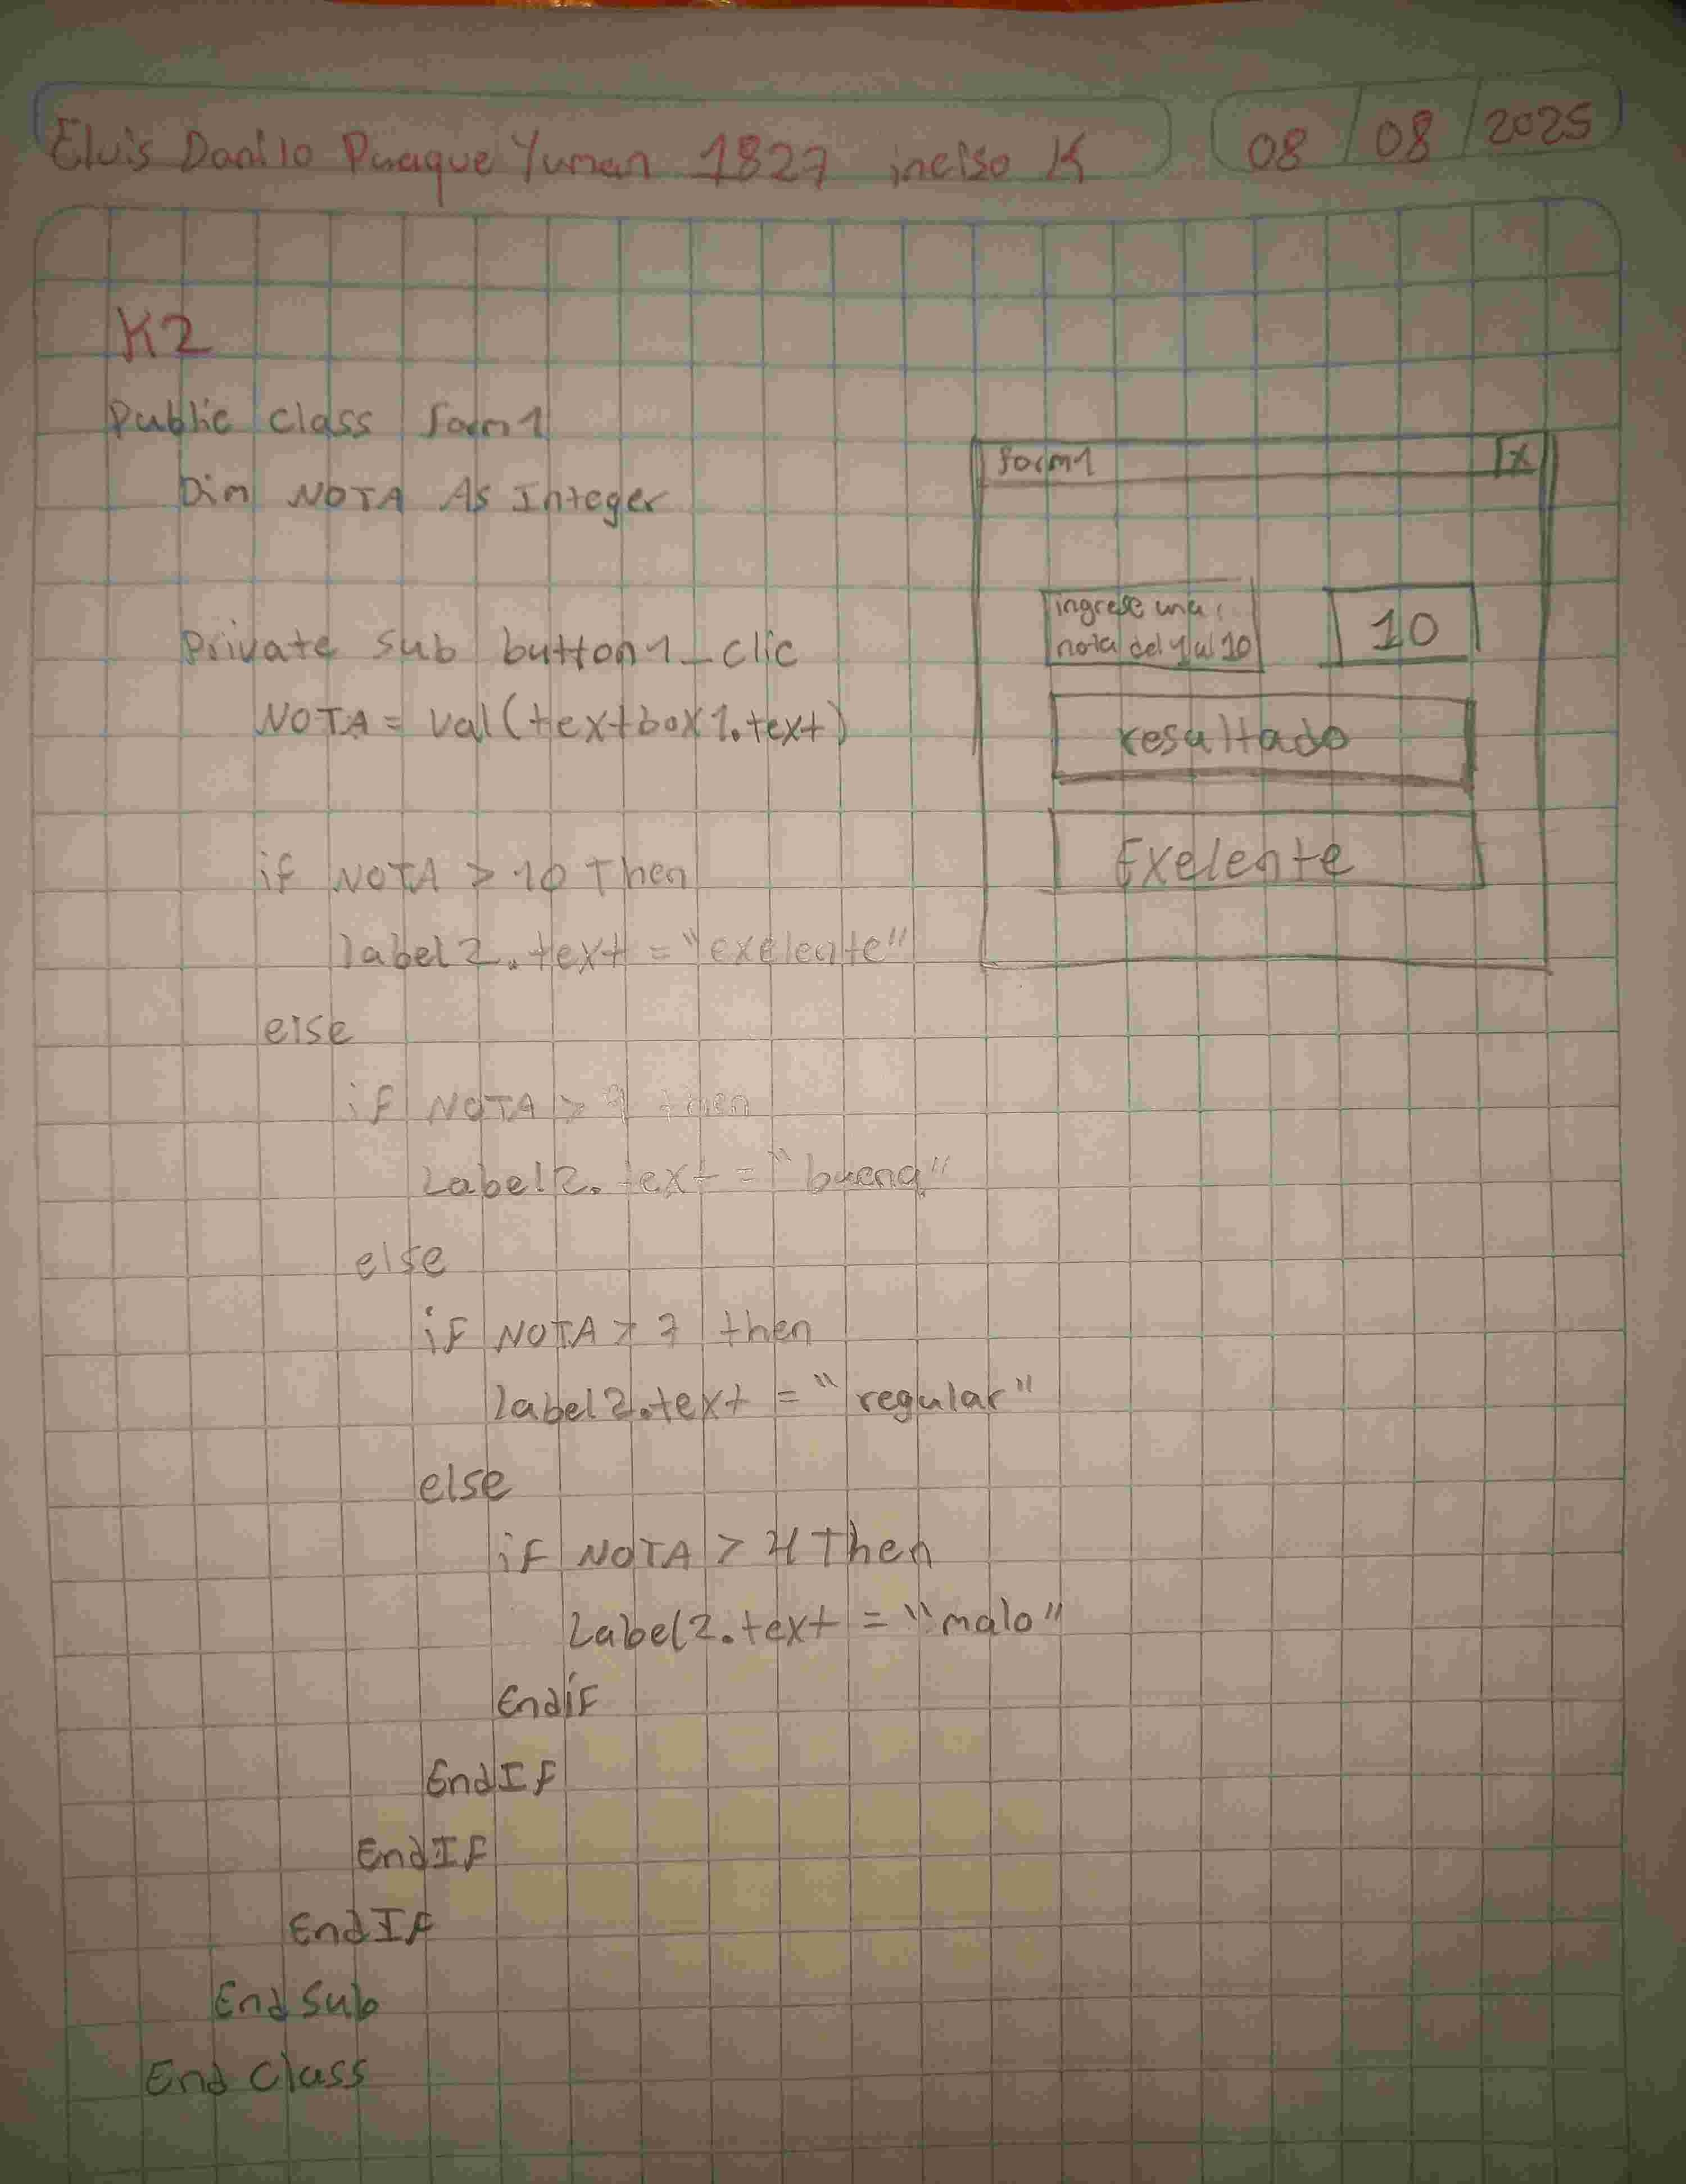 Elvis Danilo Puaque Yuman 1827 inciso K 08 / 08 / 2025
K2
Public class form1
Dim NOTA As Integer
Private Sub button1_clic
NOTA = val(textbox1.text)
if NOTA > 10 Then
label2.text = "exelente"
else
if NOTA > 9 then
Label2.text = "buena"
else
if NOTA > 7 then
label2.text = "regular"
else
if NOTA > 4 Then
Label2.text = "malo"
Endif
EndIf
EndIf
EndIf
End Sub
End class
form1 X
ingrese una
nota del 1 al 10
10
resultado
Exelente